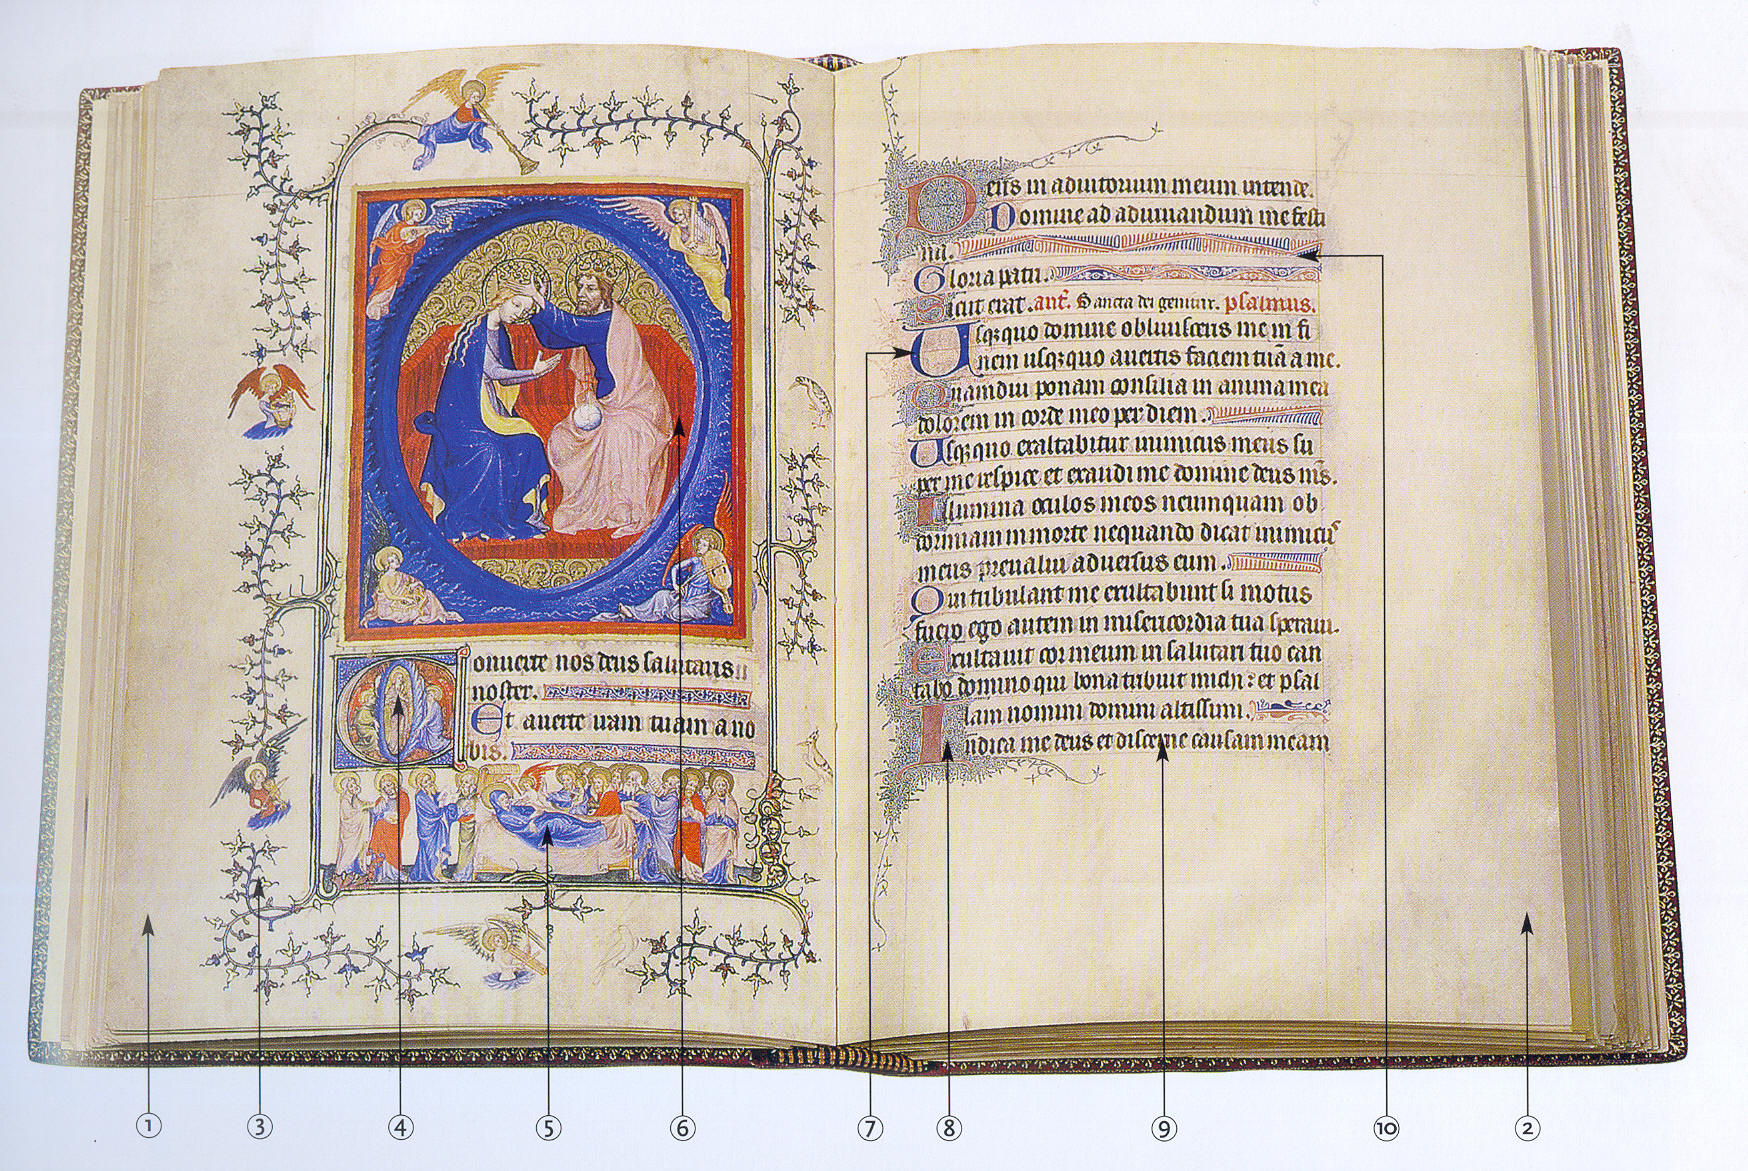 Conuerte nos deus salutaris
noster.
Et auerte iram tuam a no
bis.
Deus in adiutorium meum intende.
Domine ad adiuuandum me festi
na.
Gloria patri.
Sicut erat. ant. Sancta dei genitrix. psalmus.
Usqꝫquo domine obliuisceris me in fi
nem usqꝫquo auertis faciem tuā a me.
Quamdiu ponam consilia in anima mea
dolorem in corde meo per diem.
Usqꝫquo exaltabitur inimicus meus su
per me respice et exaudi me domine deus ms̄.
Illumina oculos meos ne umquam ob
dormiam in morte nequando dicat inimicus
meus preualui aduersus eum.
Qui tribulant me exultabunt si motus
fuero ego autem in misericordia tua speraui.
Exultauit cor meum in salutari tuo can
tabo domino qui bona tribuit michi: et psal
lam nomini domini altissimi.
Iudica me deus et discerne causam meam
① ③ ④ ⑤ ⑥ ⑦ ⑧ ⑨ ⑩ ②